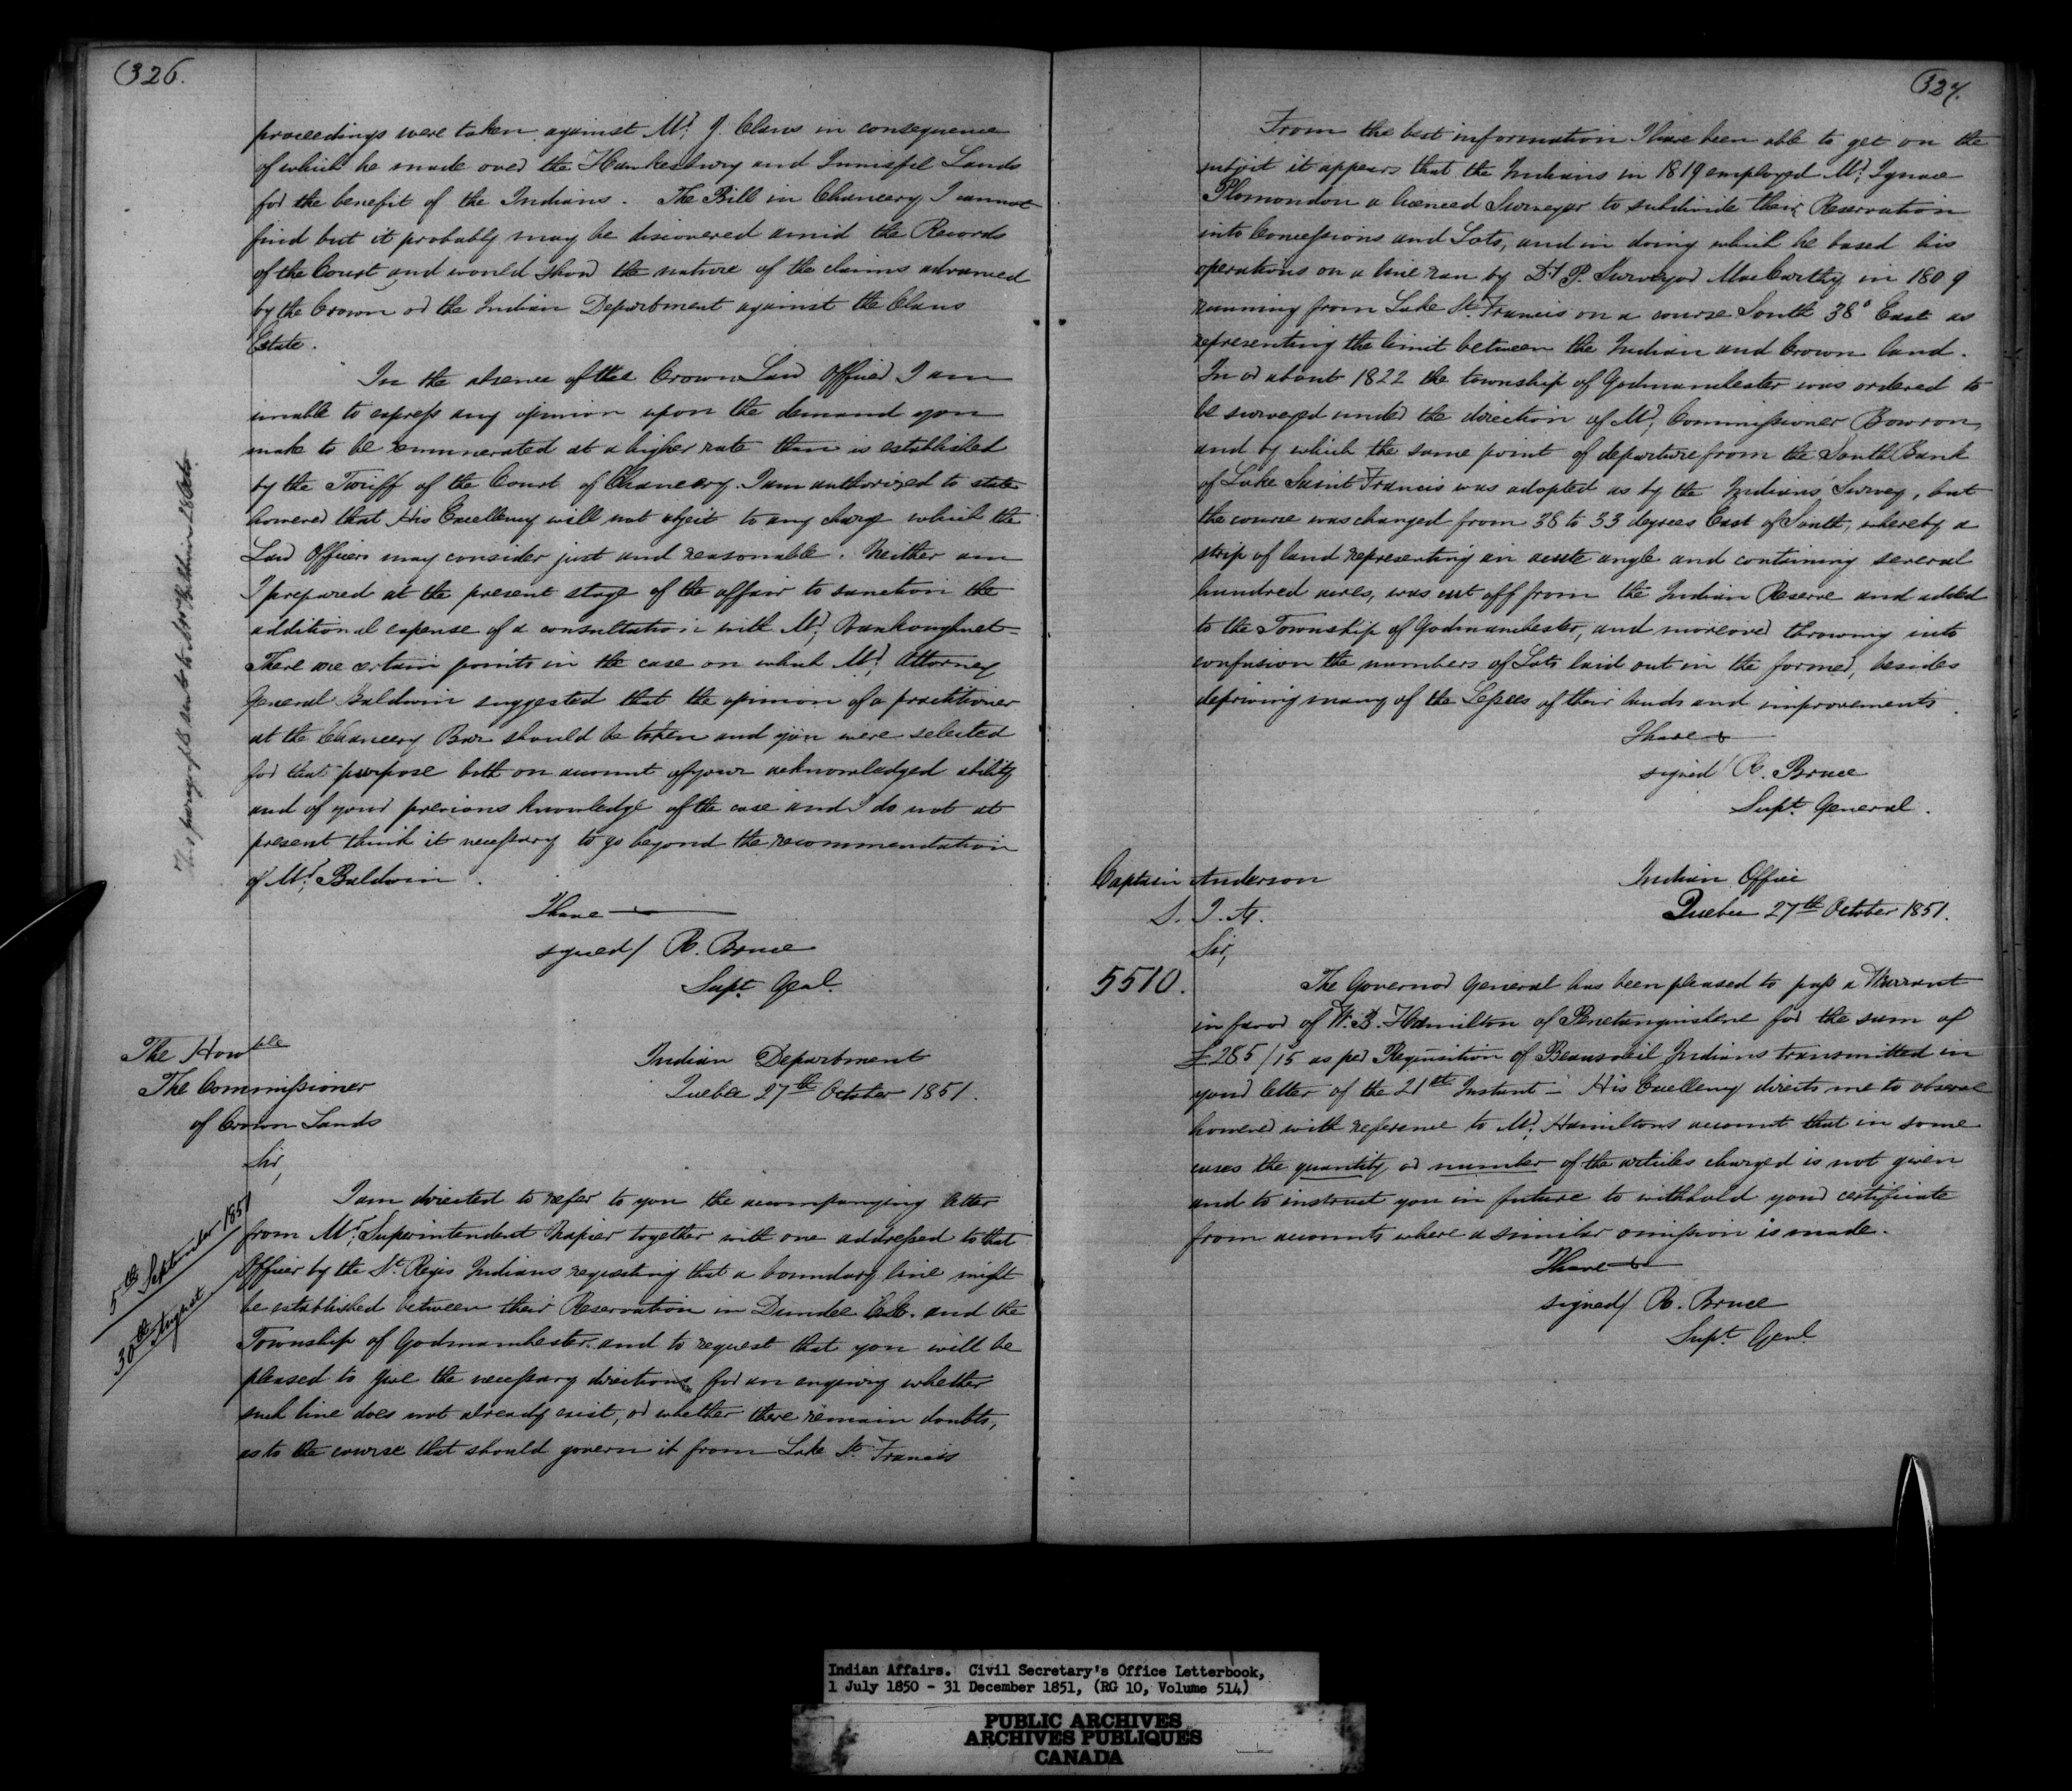 326.
proceedings were taken against Mr. J. Claus in consequence
of which he made over the Hawkesbury and Innisfil Lands
for the benefit of the Indians. The Bill in Chancery I cannot
find but it probably may be discovered amid the Records
of the Court and would show the nature of the claims advanced
by the Crown or the Indian Department against the Claus
Estate.
In the absence of the Crown Law Officer I am
unable to express any opinion upon the demand you
make to be remunerated at a higher rate than is established
by the Tariff of the Court of Chancery. I am authorized to state
however that His Excellency will not object to any charge which the
Law Officers may consider just and reasonable. Neither am
I prepared at the present stage of the affair to sanction the
additional expense of a consultation with Mr. Vankoughnet -
There are certain points in the case on which Mr. Attorney
General Baldwin suggested that the opinion of a practitioner
at the Chancery Bar should be taken and you were selected
for that purpose both on account of your acknowledged ability
and of your previous knowledge of the case and I do not at
present think it necessary to go beyond the recommendation
of Mr. Baldwin.
This paragraph sent to Mr
I have
signed/ R. Bruce
Supt. Genl.
The Honble
The Commissioner
of Crown Lands
Indian Department
Quebec 27th October 1851.
Sir,
5th September 1851
30th August
I am directed to refer to you the accompanying letter
from Mr. Superintendent Napier together with one addressed to that
Officer by the St. Regis Indians requesting that a boundary line might
be established between their Reservation in Dundee C.E. and the
Township of Godmanchester and to request that you will be
pleased to give the necessary directions for an enquiry whether
such line does not already exist, or whether there remain doubts,
as to the course that should govern it from Lake St. Francis
327.
From the best information I have been able to get on the
subject it appears that the Indians in 1819 employed Mr. Ignace
Plomondon a licenced Surveyor to subdivide their Reservation
into Concessions and Lots, and in doing which he based his
operations on a line ran by Dy. P. Surveyor MacCarthy in 1809
running from Lake St. Francis on a course South 38° East as
representing the limit between the Indian and Crown land.
In or about 1822 the township of Godmanchester was ordered to
be surveyed under the direction of Mr. Commissioner Bowron,
and by which the same point of departure from the South Bank
of Lake Saint Francis was adopted as by the Indians' Survey, but
the course was changed from 38 to 33 degrees East of South, whereby a
strip of land representing an acute angle and containing several
hundred acres, was cut off from the Indian Reserve and added
to the Township of Godmanchester, and moreover throwing into
confusion the numbers of Lots laid out in the former, besides
depriving many of the Lessees of their lands and improvements.
I have &
signed/ R. Bruce
Supt. General.
Captain Anderson
S. I. A.
Indian Office
Quebec 27th October 1851.
Sir,
5510.
The Governor General has been pleased to pass a Warrant
in favor of W. B. Hamilton of Penetanguishene for the sum of
£285/15 as per Requisition of Beausoleil Indians transmitted in
your letter of the 21st Instant - His Excellency directs me to observe
however with reference to Mr. Hamiltons account that in some
cases the quantity or number of the articles charged is not given
and to instruct you in future to withhold your certificate
from accounts where a similar omission is made.
I have &
signed/ R. Bruce
Supt. Genl
Indian Affairs. Civil Secretary's Office Letterbook,
1 July 1850 - 31 December 1851, (RG 10, Volume 514)
PUBLIC ARCHIVES
ARCHIVES PUBLIQUES
CANADA